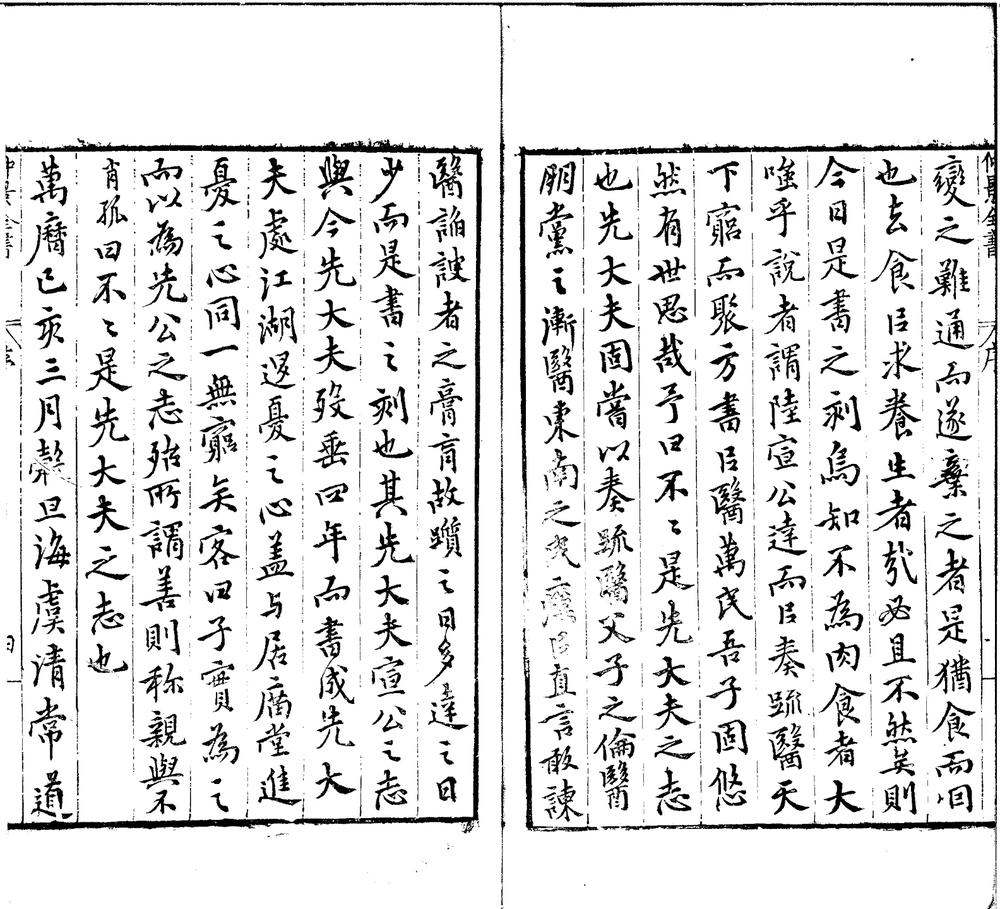 仲景全書
序
變之難通而遂棄之者是猶食而咽
也去食以求養生者哉必且不然矣則
今日是書之刻烏知不為肉食者大
嗤乎說者謂陸宣公達而以奏疏醫天
下窮而聚方書以醫萬民吾子固悠
然有世思哉予曰不不是先大夫之志
也先大夫固嘗以奏疏醫父子之倫醫
朋黨之漸醫東南之民瘼以直言敢諫
醫諂諛者之膏肓故躓之日多達之日
少而是書之刻也其先大夫宣公之志
與今先大夫歿垂四年而書成先大
夫處江湖退憂之心盖与居廟堂進
憂之心同一無窮矣客曰子實為之
而以為先公之志殆所謂善則称親與不
肖孤曰不不是先大夫之志也
萬曆己亥三月穀旦海虞清常道
仲景全書
四